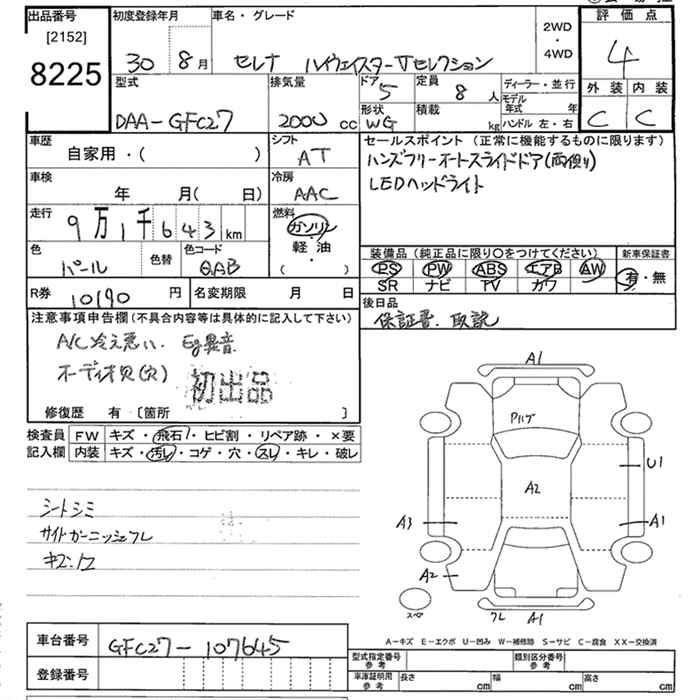 出品番号
[2152]
8225
初度登録年月
30 8月
車名・グレード
セレナ ハイウェイスターVセレクション
2WD
・
4WD
評価点
4
外装 内装
C C
型式
DAA-GFC27
排気量
2000 cc
ドア
5
形状
WG
定員
8 人
積載
kg
ディーラー・並行
モデル年式 年
ハンドル 左・右
車歴
自家用・( )
シフト
AT
車検
年 月( 日)
冷房
AAC
走行
9万1千643km
燃料
ガソリン
軽・油
( )
色
パール
色替
色コード
QAB
R券
10190 円
名変期限 月 日
セールスポイント (正常に機能するものに限ります)
ハンズフリーオートスライドドア(両側り)
LEDヘッドライト
装備品 (純正品に限り○をつけてください)
PS PW ABS エアB AW
SR ナビ TV カワ
新車保証書
有・無
後日品
保証書、取説
注意事項申告欄 (不具合内容等は具体的に記入して下さい)
A/C冷え悪い、Eg異音
オーディオ欠(穴)
初出品
修復歴 有 [箇所 ]
検査員記入欄
FW キズ・飛石・ヒビ割・リペア跡・×要
内装 キズ・汚レ・コゲ・穴・スレ・キレ・破レ
シートシミ
サイドガーニッシュフレ
キズ
A1
Pハゲ
U1
A2
A3
A1
A2
スペア
フレ A1
A-キズ E-エクボ U-凹み W-補修跡 S-サビ C-腐食 XX-交換済
車台番号
GFC27-107645
登録番号
型式指定番号 参考
類別区分番号 参考
車庫証明用 参考
長さ cm
幅 cm
高さ cm